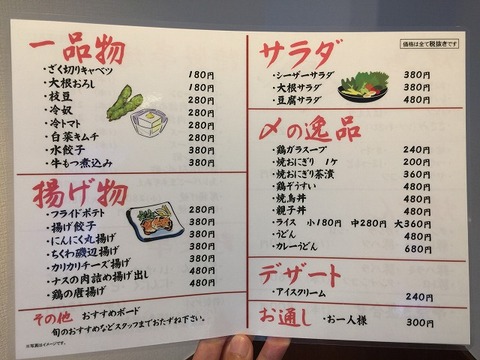 一品物
・ざく切りキャベツ 180円
・大根おろし 180円
・枝豆 280円
・冷奴 280円
・冷トマト 280円
・白菜キムチ 280円
・水餃子 380円
・牛もつ煮込み 380円
揚げ物
・フライドポテト 280円
・揚げ餃子 380円
・にんにく丸揚げ 380円
・ちくわ磯辺揚げ 380円
・カリカリチーズ揚げ 380円
・ナスの肉詰め揚げ出し 480円
・鶏の唐揚げ 480円
その他 おすすめボード
旬のおすすめなどスタッフまでおたずね下さい。
※写真はイメージです。
価格は全て税抜きです
サラダ
・シーザーサラダ 380円
・大根サラダ 380円
・豆腐サラダ 480円
〆の逸品
・鶏ガラスープ 240円
・焼おにぎり 1ケ 200円
・焼おにぎり茶漬 360円
・鶏ぞうすい 480円
・焼鳥丼 480円
・親子丼 480円
・ライス 小180円 中280円 大360円
・うどん 480円
・カレーうどん 680円
デザート
・アイスクリーム 240円
お通し ・お一人様 300円